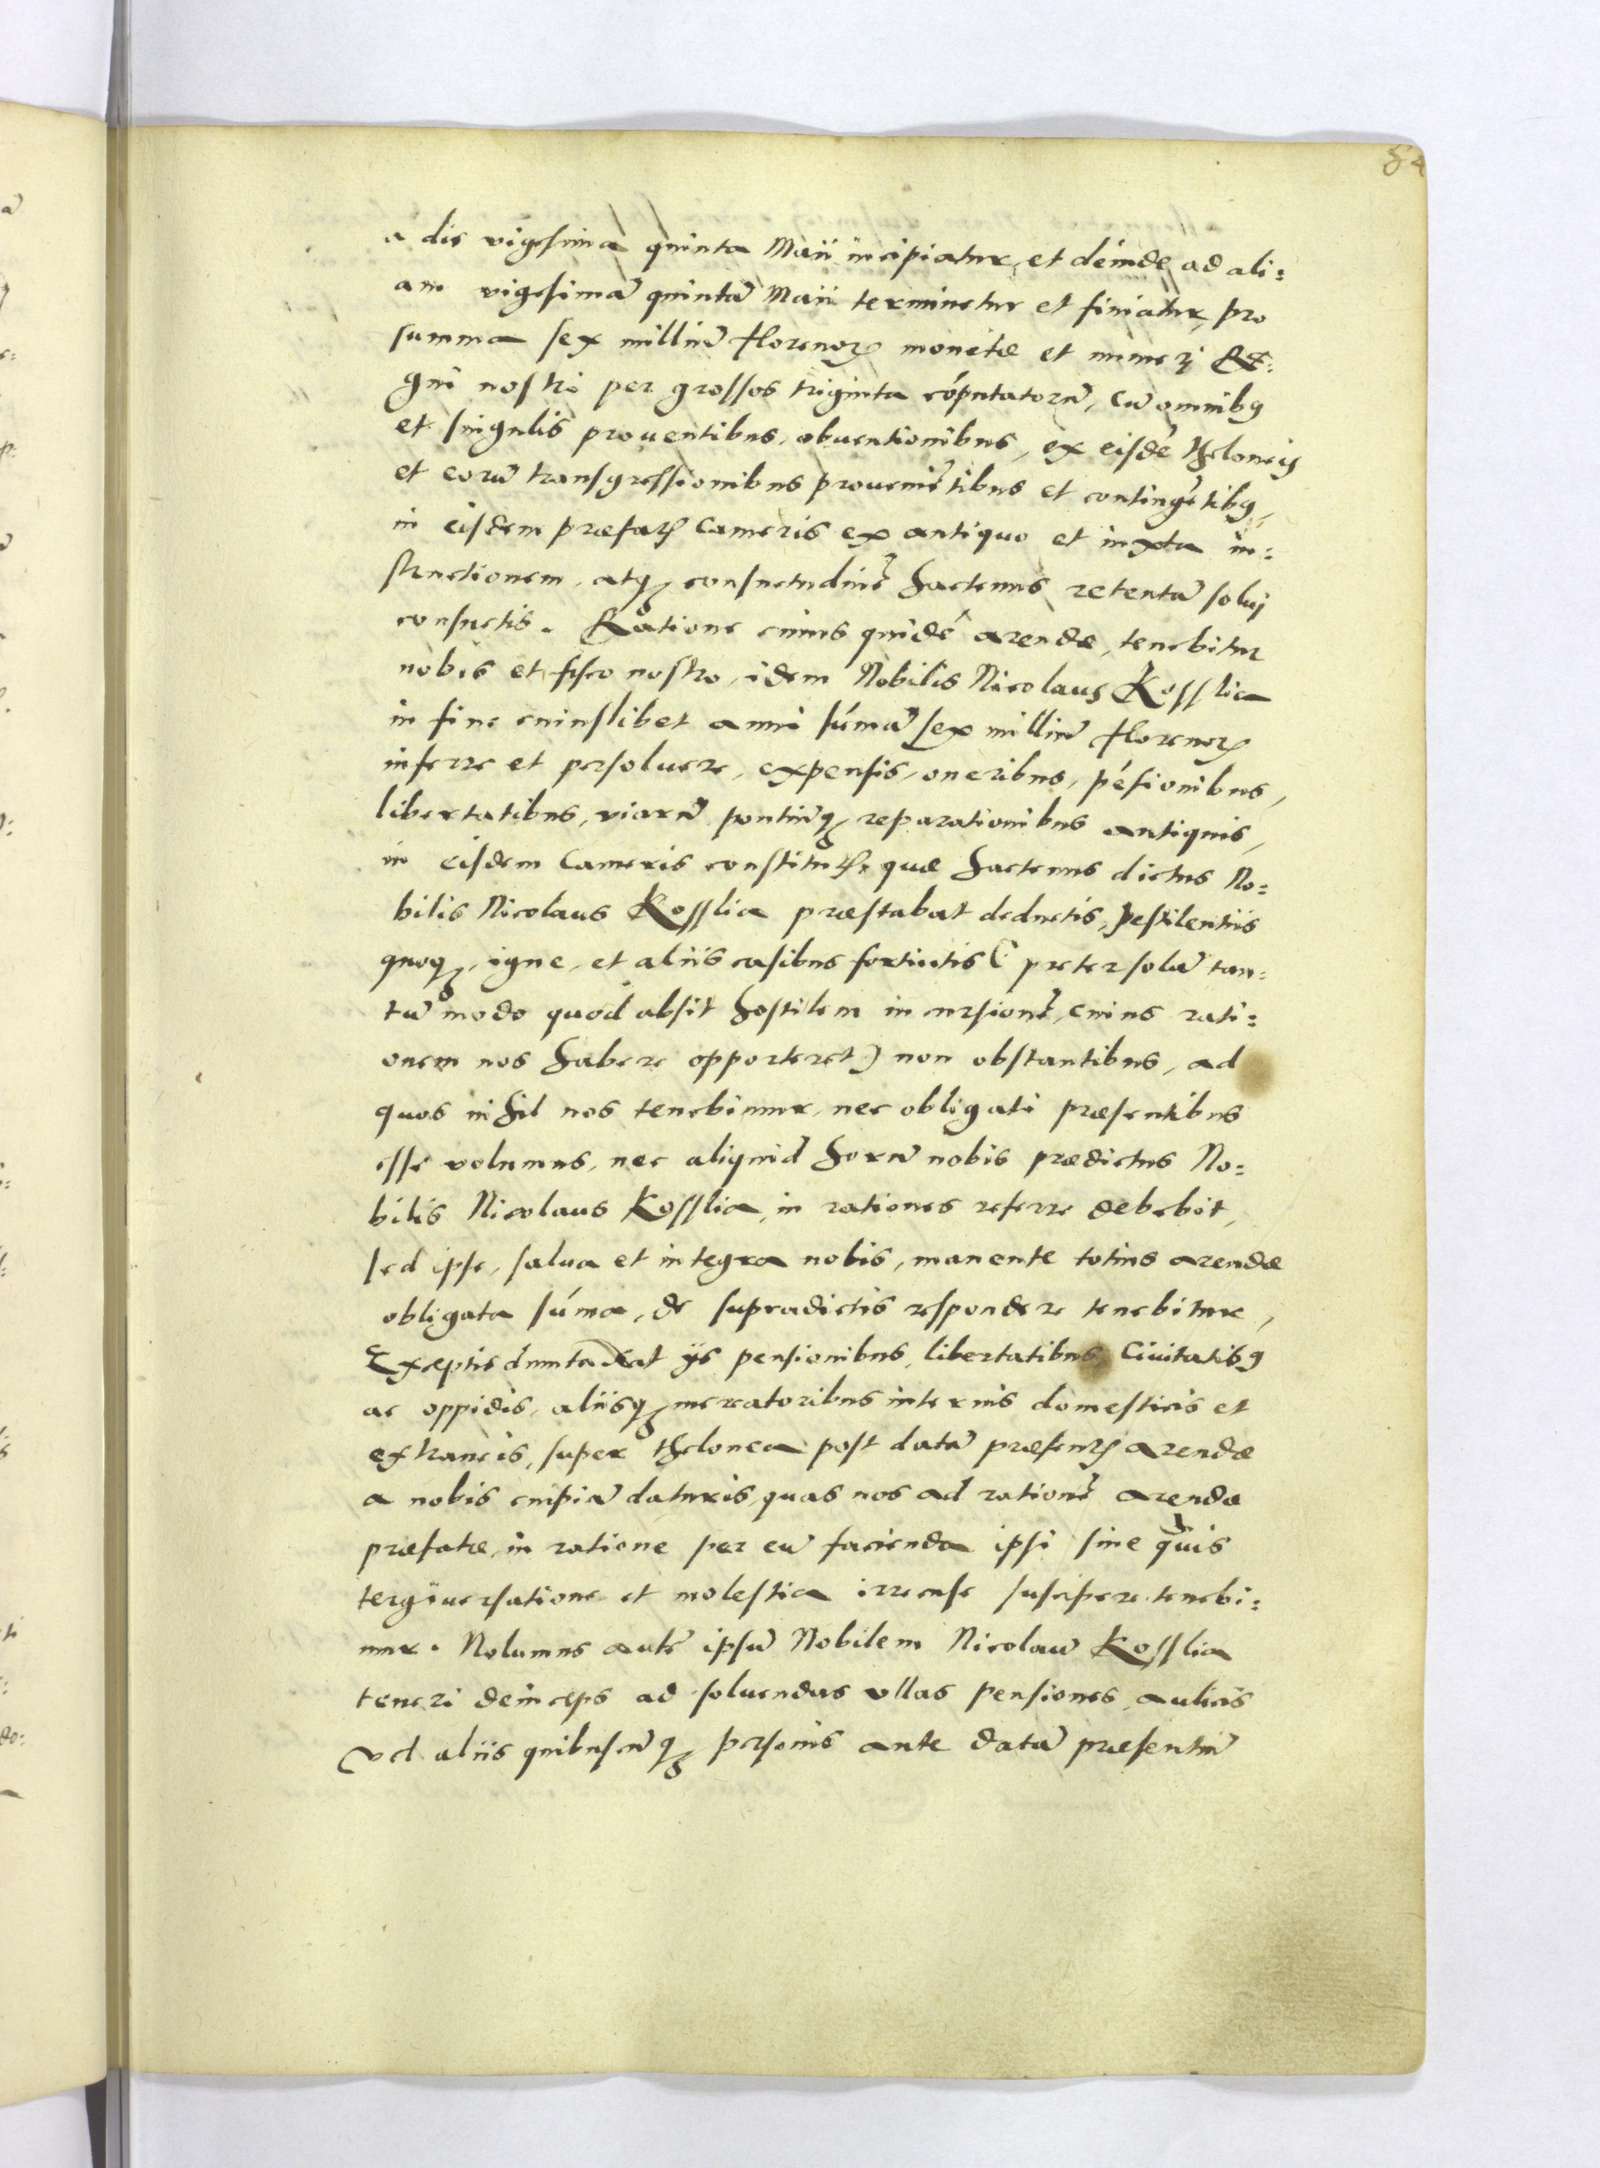 84
a die vigesima quinta Maii incipiatur, et deinde ad ali=
am vigesimā quintā Maii terminetur et finiatur, pro
summa sex milliū florenorꝝ monetæ et numeri Re=
gni nostri per grossos triginta cōputatorū, cū omnibꝯ
et singulis prouentibus, obuentionibus, ex eisdē theloneis
et eorū transgressionibus proueniētibus et contingētibꝯ,
in eisdem præfatꝭ Cameris ex antiquo et iuxta in=
structionem, atqꝫ consuetudinē hactenus retentā solui
consuetis. Ratione cuius quidē arendæ, tenebitur
nobis et fisco nostro, idem Nobilis Nicolaus Kosslia
in fine cuiuslibet anni sūmā sex milliū florenorꝝ
inferre et persoluere, expensis, oneribus, pēsionibus,
libertatibus, viarū pontiūqꝫ reparationibus antiquis,
in eisdem Cameris constitutꝭ, quæ hactenus dictus No=
bilis Nicolaus Kosslia præstabat deductis, pestilentiis
quoqꝫ, igne, et aliis casibus fortuitis (preter solā tan=
tū modo quod absit hostilem incursionē, cuius rati=
onem nos habere opporteret) non obstantibus, ad
quos nihil nos tenebimur, nec obligati præsentibus
esse volumus, nec aliquid horū nobis prædictus No=
bilis Nicolaus Kosslia, in rationes referre debebit,
sed ipse, salua et integra nobis, manente totius arendæ
obligata sūma, de supradictis respondere tenebitur,
Exceptis duntaxat ijs pensionibus, libertatibus, Ciuitatibꝯ
ac oppidis, aliisqꝫ mercatoribus internis domesticis et
extraneis, super thelonea post datā præsentꝭ arendæ
a nobis cuipiā daturis, quas nos ad rationē arendæ
præfatæ, in ratione per eū facienda ipsi sine quis
tergiuersatione et molestia irrecuse suscipere tenebi=
mur. Nolumus autē ipsū Nobilem Nicolaū Kosslia
teneri deinceps ad soluendas vllas pensiones, aulicis
vel aliis quibuscūqꝫ personis ante datā præsentiū